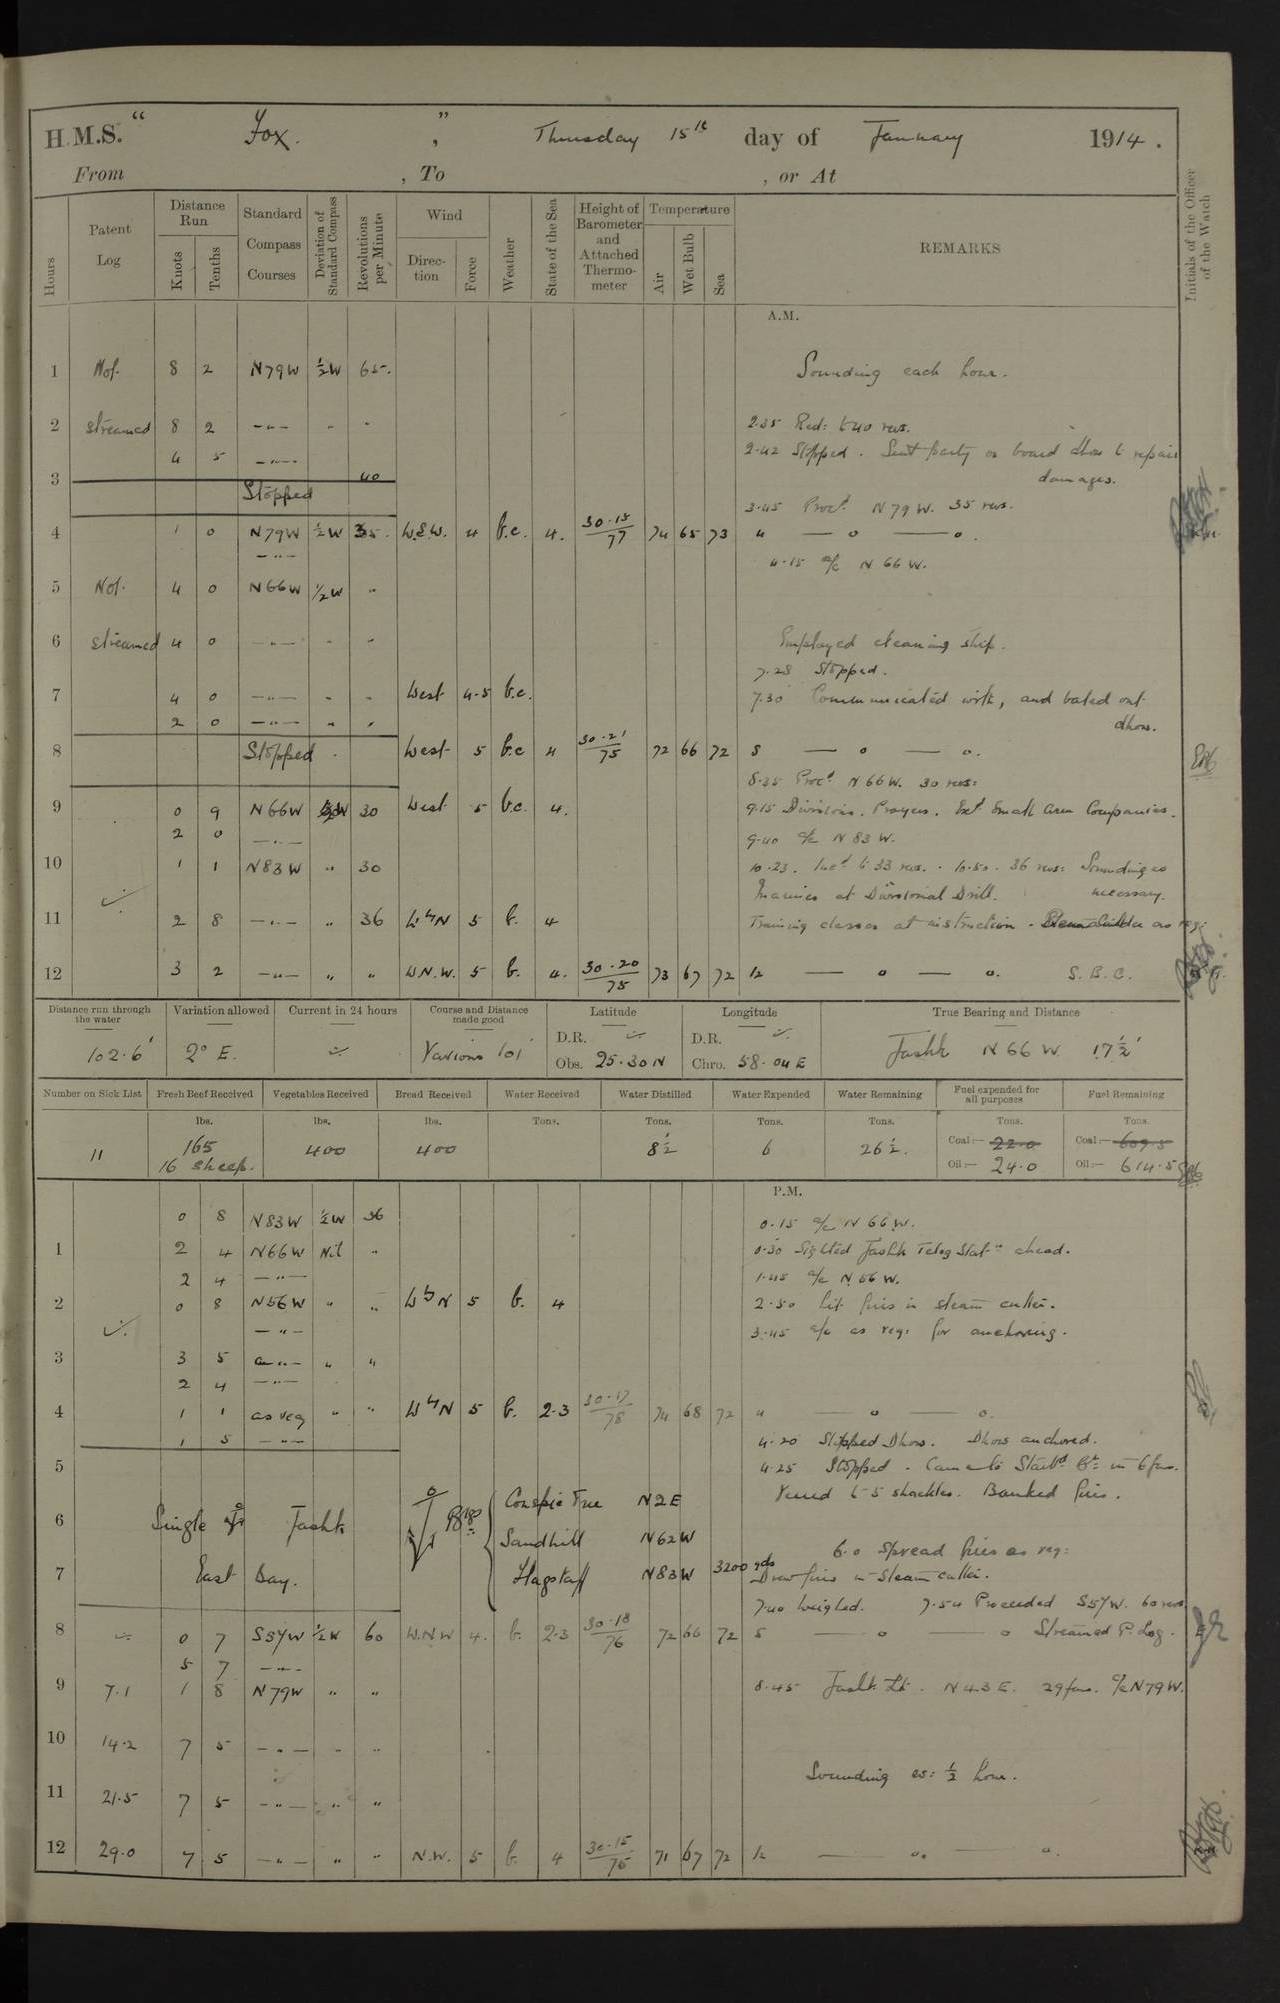 H.M.S. " Fox. ", Thursday 15th day of January 1914.
From , To , or At
Hours
Patent Log
Distance Run
Knots
Tenths
Standard Compass Courses
Deviation of Standard Compass
Revolutions per Minute
Wind
Direction
Force
Weather
State of the Sea
Height of Barometer and Attached Thermometer
Temperature
Air
Wet Bulb
Sea
REMARKS
Initials of the Officer of the Watch
A.M.
1 Not 8 2 N79W ½W 65. Sounding each hour.
2 streamed 8 2 –"– - - 2.35 Red: to 40 revs.
4 5 –"– 2.42 Stopped. Sent party on board dhow to repair
3 Stopped 40 damages.
3.45 Procd N79W. 35 revs.
4 1 0 N79W ½W 35. W.S.W. 4 b.c. 4. 30.15/77 74 65 73 4 — o — o.
–"– 4.15 a/c N66W.
5 Not 4 0 N66W ½W "
6 streamed 4 0 –"– - - Employed cleaning ship.
7.28 Stopped.
7 4 0 –"– - - West 4-5 b.c. 7.30 Communicated with, and baled out
2 0 –"– " " dhow.
8 Stopped West 5 b.c 4 30.21/75 72 66 72 8 — o — o.
8.35 Procd N66W. 30 revs:
9 0 9 N66W ½W 30 West 5 b.c. 4. 9.15 Divisions. Prayers. Exd Small Arm Companies.
2 0 –"– 9.40 a/c N83W.
10 1 1 N83W " 30 10.23. Incd to 33 revs. 10.50. 36 revs: Sounding as
Marines at Divisional Drill. necessary.
11 2 8 –"– " 36 WbyN 5 b. 4 Training classes at instruction. as req:
12 3 2 –"– " " W.N.W. 5 b. 4. 30.20/75 73 67 72 12 — o — o. S.B.C.
Distance run through the water
Variation allowed
Current in 24 hours
Course and Distance made good
Latitude
Longitude
True Bearing and Distance
102.6' 2° E. Various 101' D.R. Obs. 25.30 N D.R. Chro. 58.04 E Jashk N66W 17½'
Number on Sick List
Fresh Beef Received
Vegetables Received
Bread Received
Water Received
Water Distilled
Water Expended
Water Remaining
Fuel expended for all purposes
Fuel Remaining
lbs. lbs. lbs. Tons. Tons. Tons. Tons. Tons. Tons.
11 165 400 400 8½ 6 26½. Coal:— 22.0 Coal:— 609.5
16 sheep. Oil:— 24.0 Oil:— 614.5
P.M.
0 8 N83W ½W 36 0.15 a/c N66W.
1 2 4 N66W Nil " 0.30 Sighted Jashk Teleg Statn ahead.
2 4 –"– 1.45 a/c N56W.
2 0 8 N56W " " WbyN 5 b. 4 2.50 Lit fires in steam cutter.
–"– 3.45 a/c as req: for anchoring.
3 3 5 –"– " "
2 4 –"–
4 1 1 as req " " WbyN 5 b. 2.3 30.17/78 74 68 72 4 — o — o.
1 5 –"– 4.20 Slipped Dhow. Dhow anchored.
5 4.25 Stopped. Came to Starbd Br: in 6 fms.
Veered to 5 shackles. Banked fires.
6 Single Jashk Conspic Tree N2E
Sandhill N62W 6.0 Spread fires as req:
7 East Bay. Flagstaff N83W 3200 yds Drew fires in steam cutter.
7.40 Weighed. 7.54 Proceeded S57W. 60 revs.
8 0 7 S57W ½W 60 W.N.W 4. b. 2.3 30.18/76 72 66 72 8 — o — o Streamed P. Log.
5 7 –"–
9 7.1 1 8 N79W " " 8.45 Jashk Lt. N43E. 29 fms. a/c N79W.
10 14.2 7 5 –"– - "
Sounding ev: ½ hour.
11 21.5 7 5 –"– " "
12 29.0 7 5 –"– " " N.W. 5 b. 4 30.15/75 71 67 72 12 — o. — o.